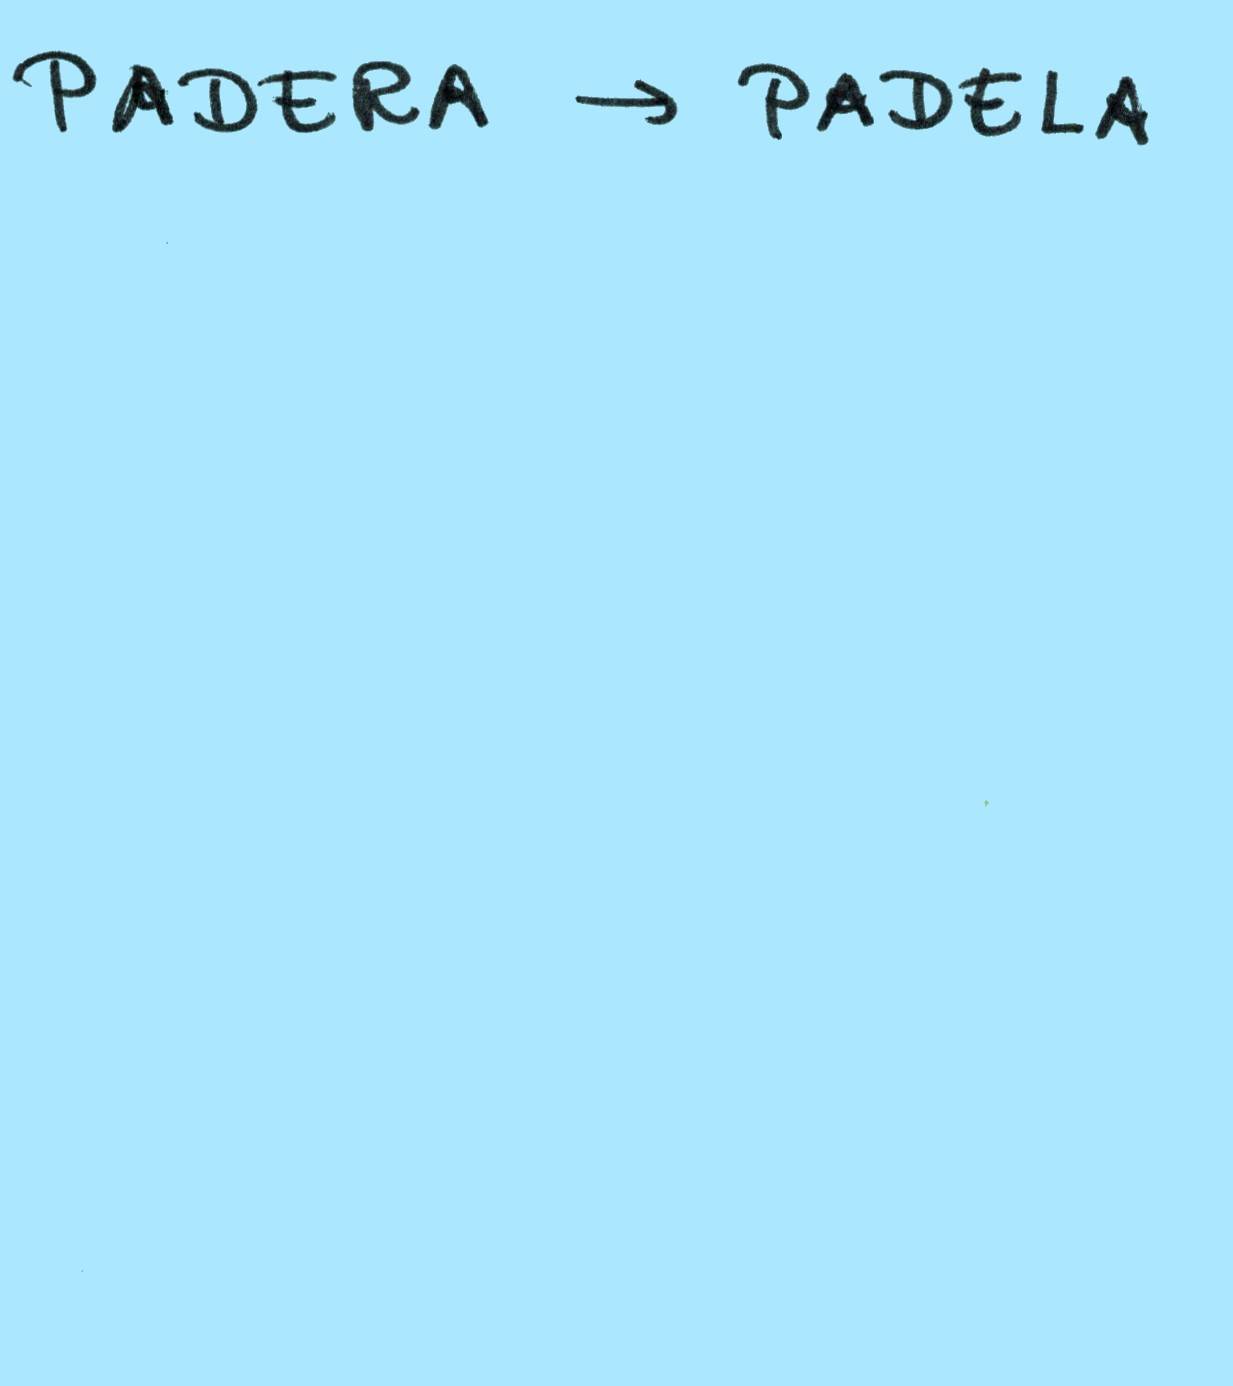 PADERA → PADELA